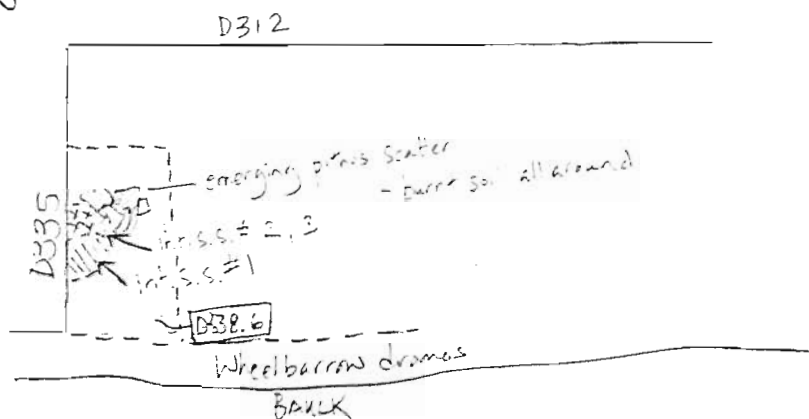 D312
emerging pithos scatter
- burnt soil all around
D335
int. s.s. # 2, 3
int. s.s. #1
D338.6
Wheelbarrow dromos
BAULK